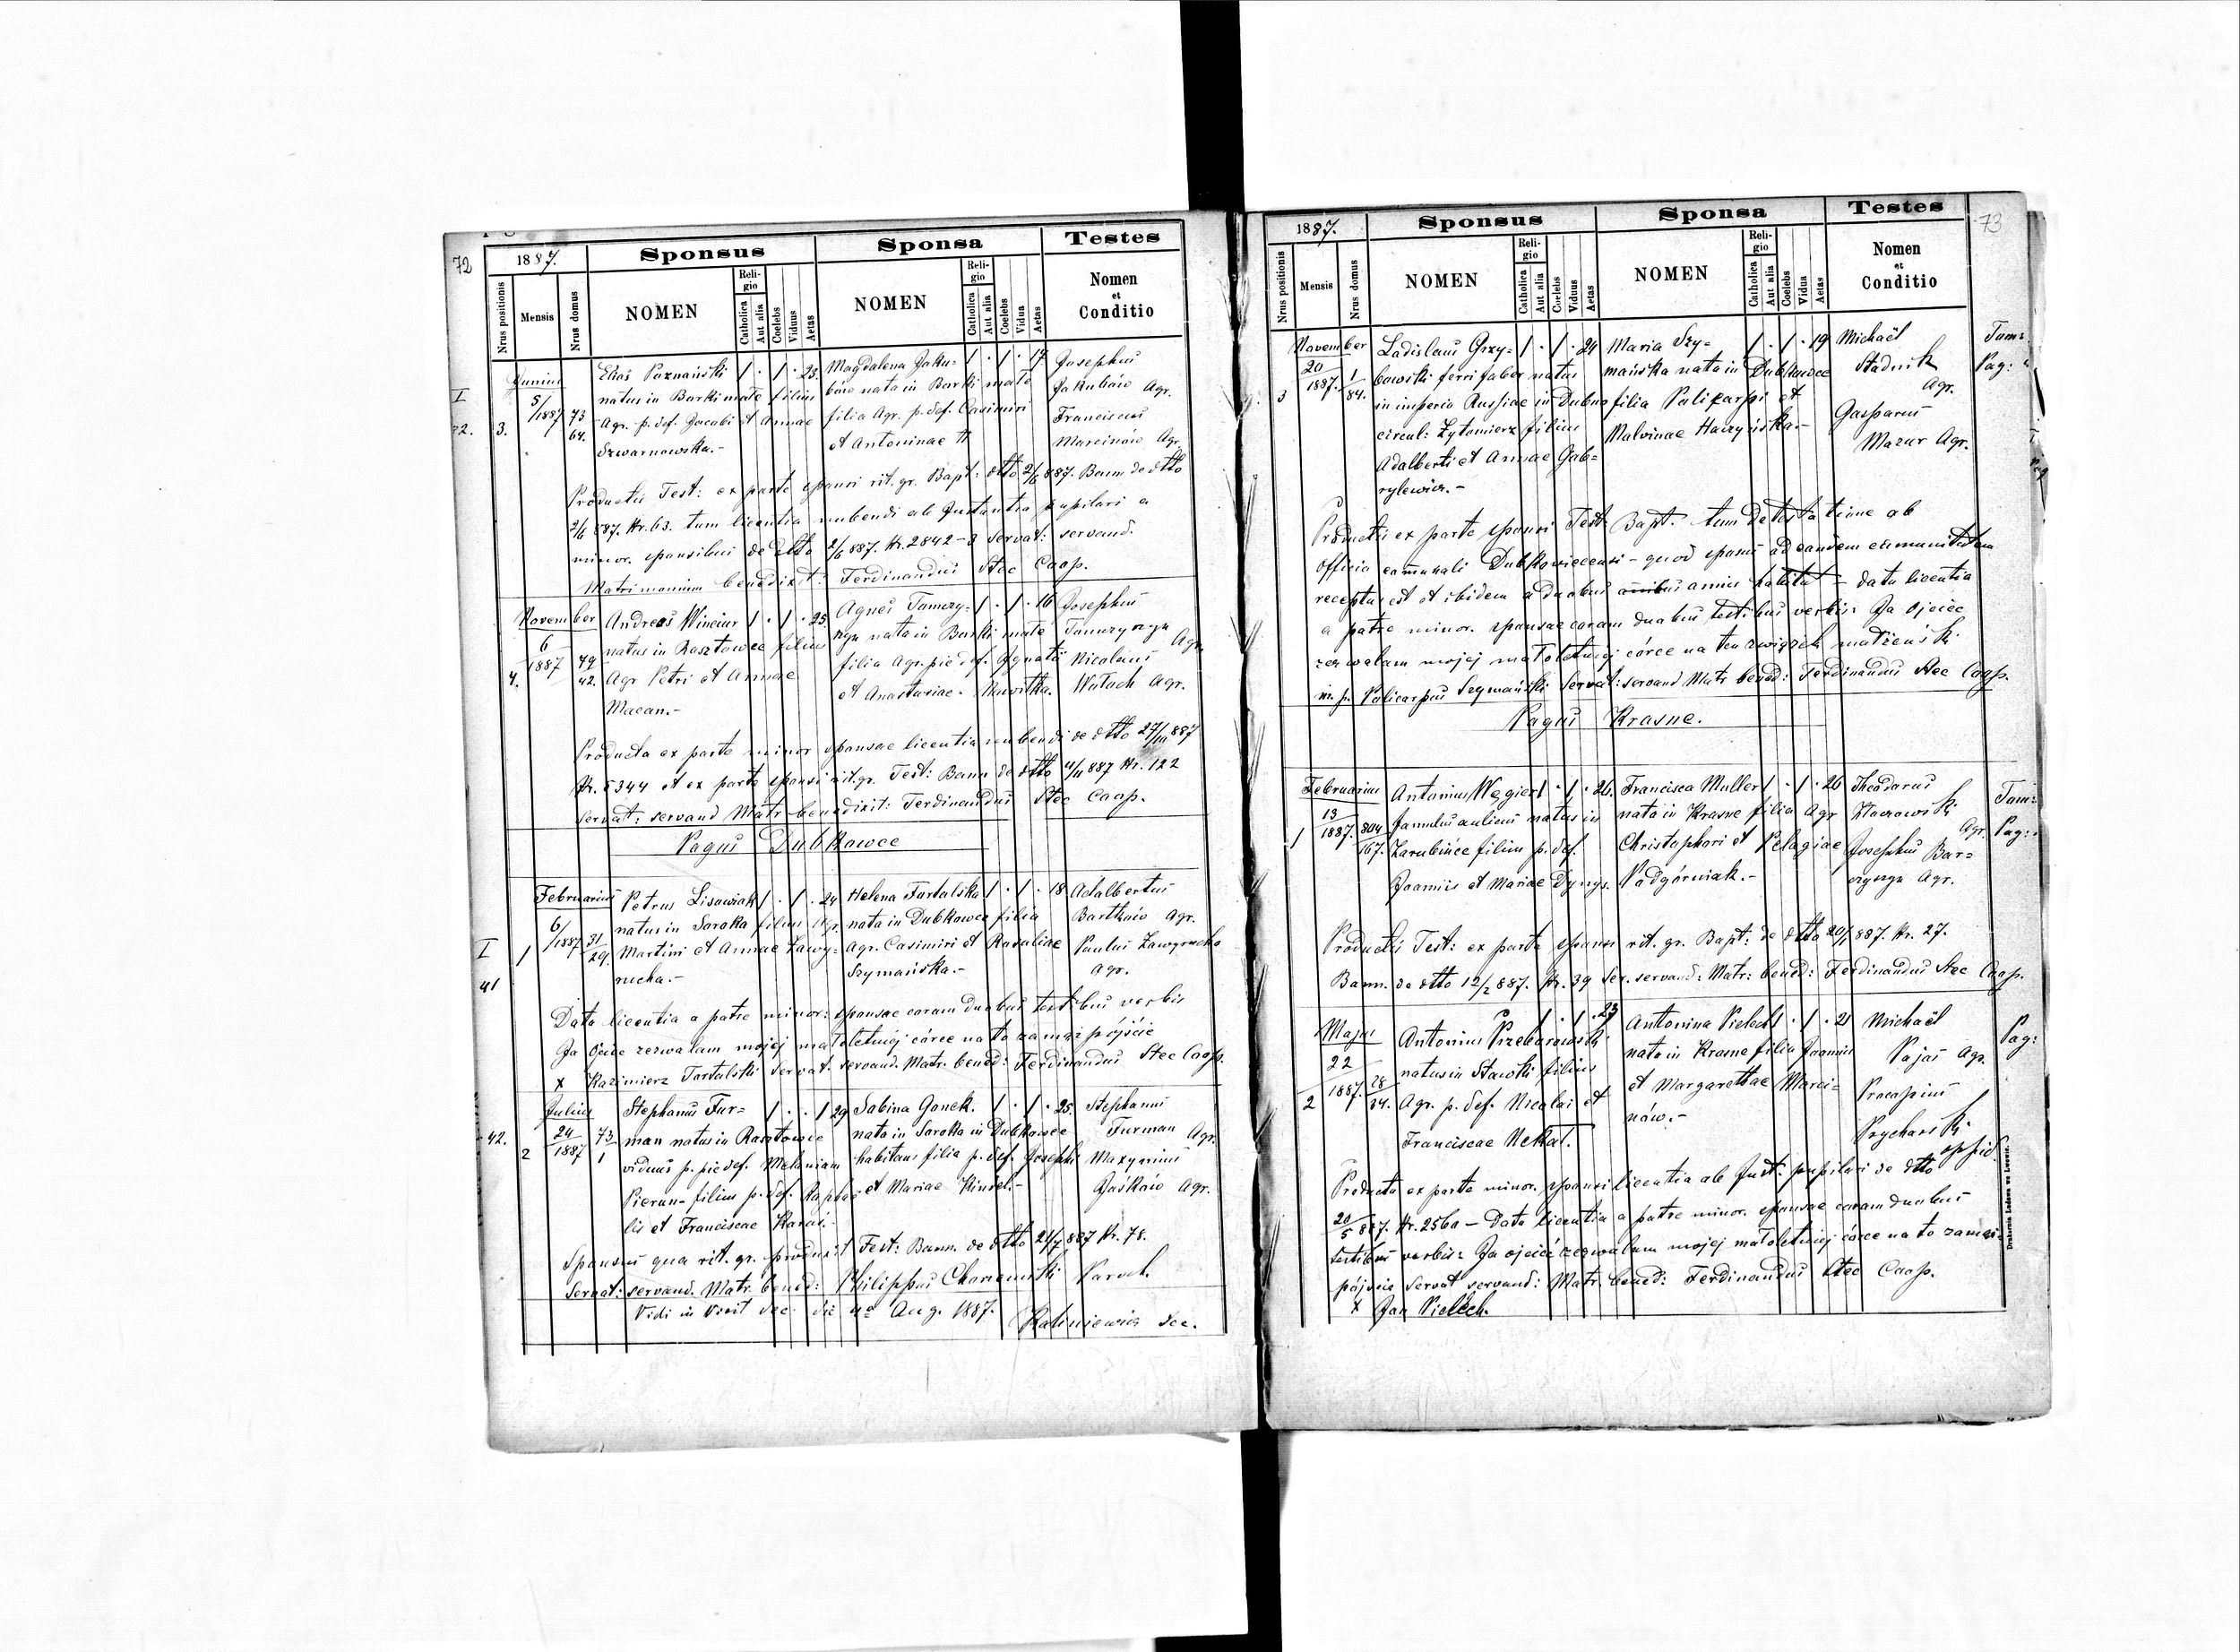 72
1887.
Sponsus
Sponsa
Testes
Nrus positionis
Mensis
Nrus domus
NOMEN
Religio
Catholica
Aut alia
Coelebs
Viduus
Aetas
NOMEN
Religio
Catholica
Aut alia
Coelebs
Vidua
Aetas
Nomen
et
Conditio
I
72.
3.
Junius
5/1887
73
64.
Elias Poznański
natus in Borki małe filius
Agr. p. def. Jacobi et Annae
Szwarnowska.-
1 . 1 . 23.
Magdalena Jaku-
bów nata in Borki małe
filia Agr. p. def. Casimiri
et Antoninae
1 . 1 . 17.
Josephus
Jakubów Agr.
Franciscus
Marcinów Agr.
Productis Test: ex parte sponsi rit. gr. Bapt: dtto 2/6 887. Bann de dtto
2/6 887. Nr. 63. tum licentia nubendi ab Instantia pupilari a
minor. sponsibus de dtto 2/6 887. Nr. 2842 - 3 servat: servand.
Matrimonium benedixit: Ferdinandus Stec Coop.
4.
November
6
1887
49
42.
Andreas Winciur
natus in Rasztowce filius
Agr Petri et Annae
Macan.-
1 . 1 . 25.
Agnes Tamczy-
nata in Borki małe
filia Agr. pie def. Ignatii
et Anastasiae.
1 . 1 . 16
Josephus
Agr.
Nicolaus
Wołoch Agr.
Producta ex parte minor sponsae licentia nubendi de dtto 27/10 887
Nr. 5344 et ex parte sponsi rit. gr. Test: Bann de dtto 4/11 887 Nr. 122
servat: servand Matr benedixit: Ferdinandus Stec Coop.
Pagus Dubkowce
I
41
1
Februarius
6/1887
31
29.
Petrus Lisowiak
natus in Soroka filius
Martini et Annae Zawy-
rucha.-
1 . 1 . 24
Helena Tartalska
nata in Dubkowce filia
Agr. Casimiri et Rosaliae
Szymańska.-
1 . 1 . 18
Adalbertus
Bartków Agr.
Paulus Zawyrucha
Agr.
Data licentia a patre minor: sponsae coram duobus testibus verbis
Ja Ojciec zezwalam mojej małoletniej córce na to zamąż pójście
X Kazimierz Tartalski servat. servand. Matr. bened: Ferdinandus Stec Coop.
42.
2
Julius
24
1887
73
1
Stephanus Fur-
man natus in Rasztowce
viduus p. pie def. Melaniam
Pierun- filius p. def. Rapha-
lis et Franciscae
1 . . 1 29
Sabina Gonek.
nata in Soroka in Dubkowce
habitans filia p. def. Josephi
et Mariae Kindel.-
1 . 1 . 25.
Stephanus
Furman Agr.
Maxymus
Jaśków Agr.
Sponsus qua rit. gr. produxit Test: Bann. de dtto 21/7 887 Nr. 78.
Servat: servand. Matr. bened: Philippus Paroch.
Vidi in Visit dec. die Aug. 1887. Kaliniewicz dec.
73
1887.
Sponsus
Sponsa
Testes
Nrus positionis
Mensis
Nrus domus
NOMEN
Religio
Catholica
Aut alia
Coelebs
Viduus
Aetas
NOMEN
Religio
Catholica
Aut alia
Coelebs
Vidua
Aetas
Nomen
et
Conditio
3
November
20
1887.
1
84.
Ladislaus Grzy-
bowski ferri faber natus
in imperio Russiae in Dubno
circul: Żytomierz filius
Adalberti et Annae Gab-
rylewicz.-
1 . 1 . 24
Maria Szy-
mańska nata in Dubkowce
filia Polikarpi et
Malvinae
1 . 1 . 19
Michaël
Stadnik
Agr.
Gasparus
Mazur Agr.
Tom:
Pag:
Productis ex parte sponsi Test. Bapt. tum detestatione ab
officio communali Dubkowiecensi - quod sponsus ad eandem communitatem
receptus est et ibidem a duobus annis habitat - data licentia
a patre minor. sponsae coram duobus testibus verbis: Ja Ojciec
zezwalam mojej małoletniej córce na ten związek małżeński
m. p. Policarpus Szymański Servat: servand Matr bened: Ferdinandus Stec Coop.
Pagus Krasne.
1
Februarius
13
1887.
304
167.
Antonius Węgier
famulus aulicus natus in
Zarubińce filius p. def.
Joannis et Mariae Dynys.
1 . 1 . 26.
Francisca Muller
nata in Krasne filia Agr
Christophori et Pelagiae
Podgórniak.-
1 . 1 . 20
Theodorus
Agr.
Josephus Bar-
Agr.
Tom:
Pag:
Productis Test: ex parte sponsi rit. gr. Bapt: de dtto 20/1 887. Nr. 27.
Bann. de dtto 12/2 887. Nr. 39 Ser. servand: Matr: bened: Ferdinandus Stec Coop.
2
Majus
22
1887.
28
34.
Antonius Przeborowski
natus in Stawki filius
Agr. p. def. Nicolai et
Franciscae Nekal.
1 . 1 . 23
Antonina Pielech
nata in Krasne filia Joannis
et Margarethae Marci-
nów.-
1 . 1 . 21
Michaël
Pajas Agr.
Procopius
Prycharski
oppid.
Pag:
Producta ex parte minor. sponsi licentia ab Inst. pupilari de dtto
20/5 887. Nr. 2560 - Data licentia a patre minor. sponsae coram duobus
testibus verbis: Ja ojciec zezwalam mojej małoletniej córce na to zamąż-
pójście Servat servand: Matr. bened: Ferdinandus Stec Coop.
X Jan Pielech.